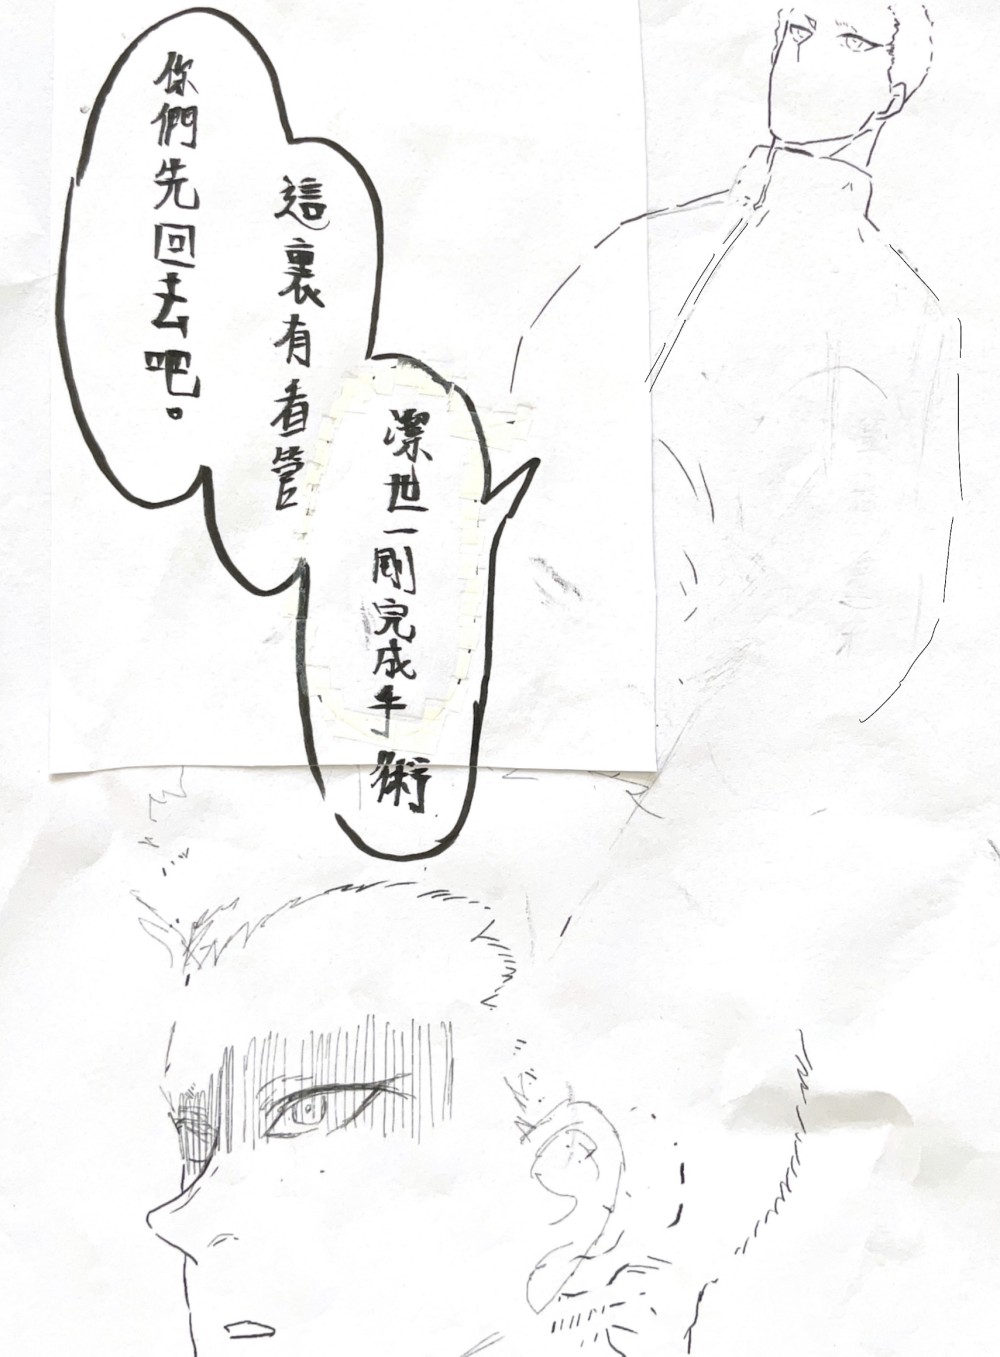 潔世一剛完成手術
這裏有看管
你們先回去吧。